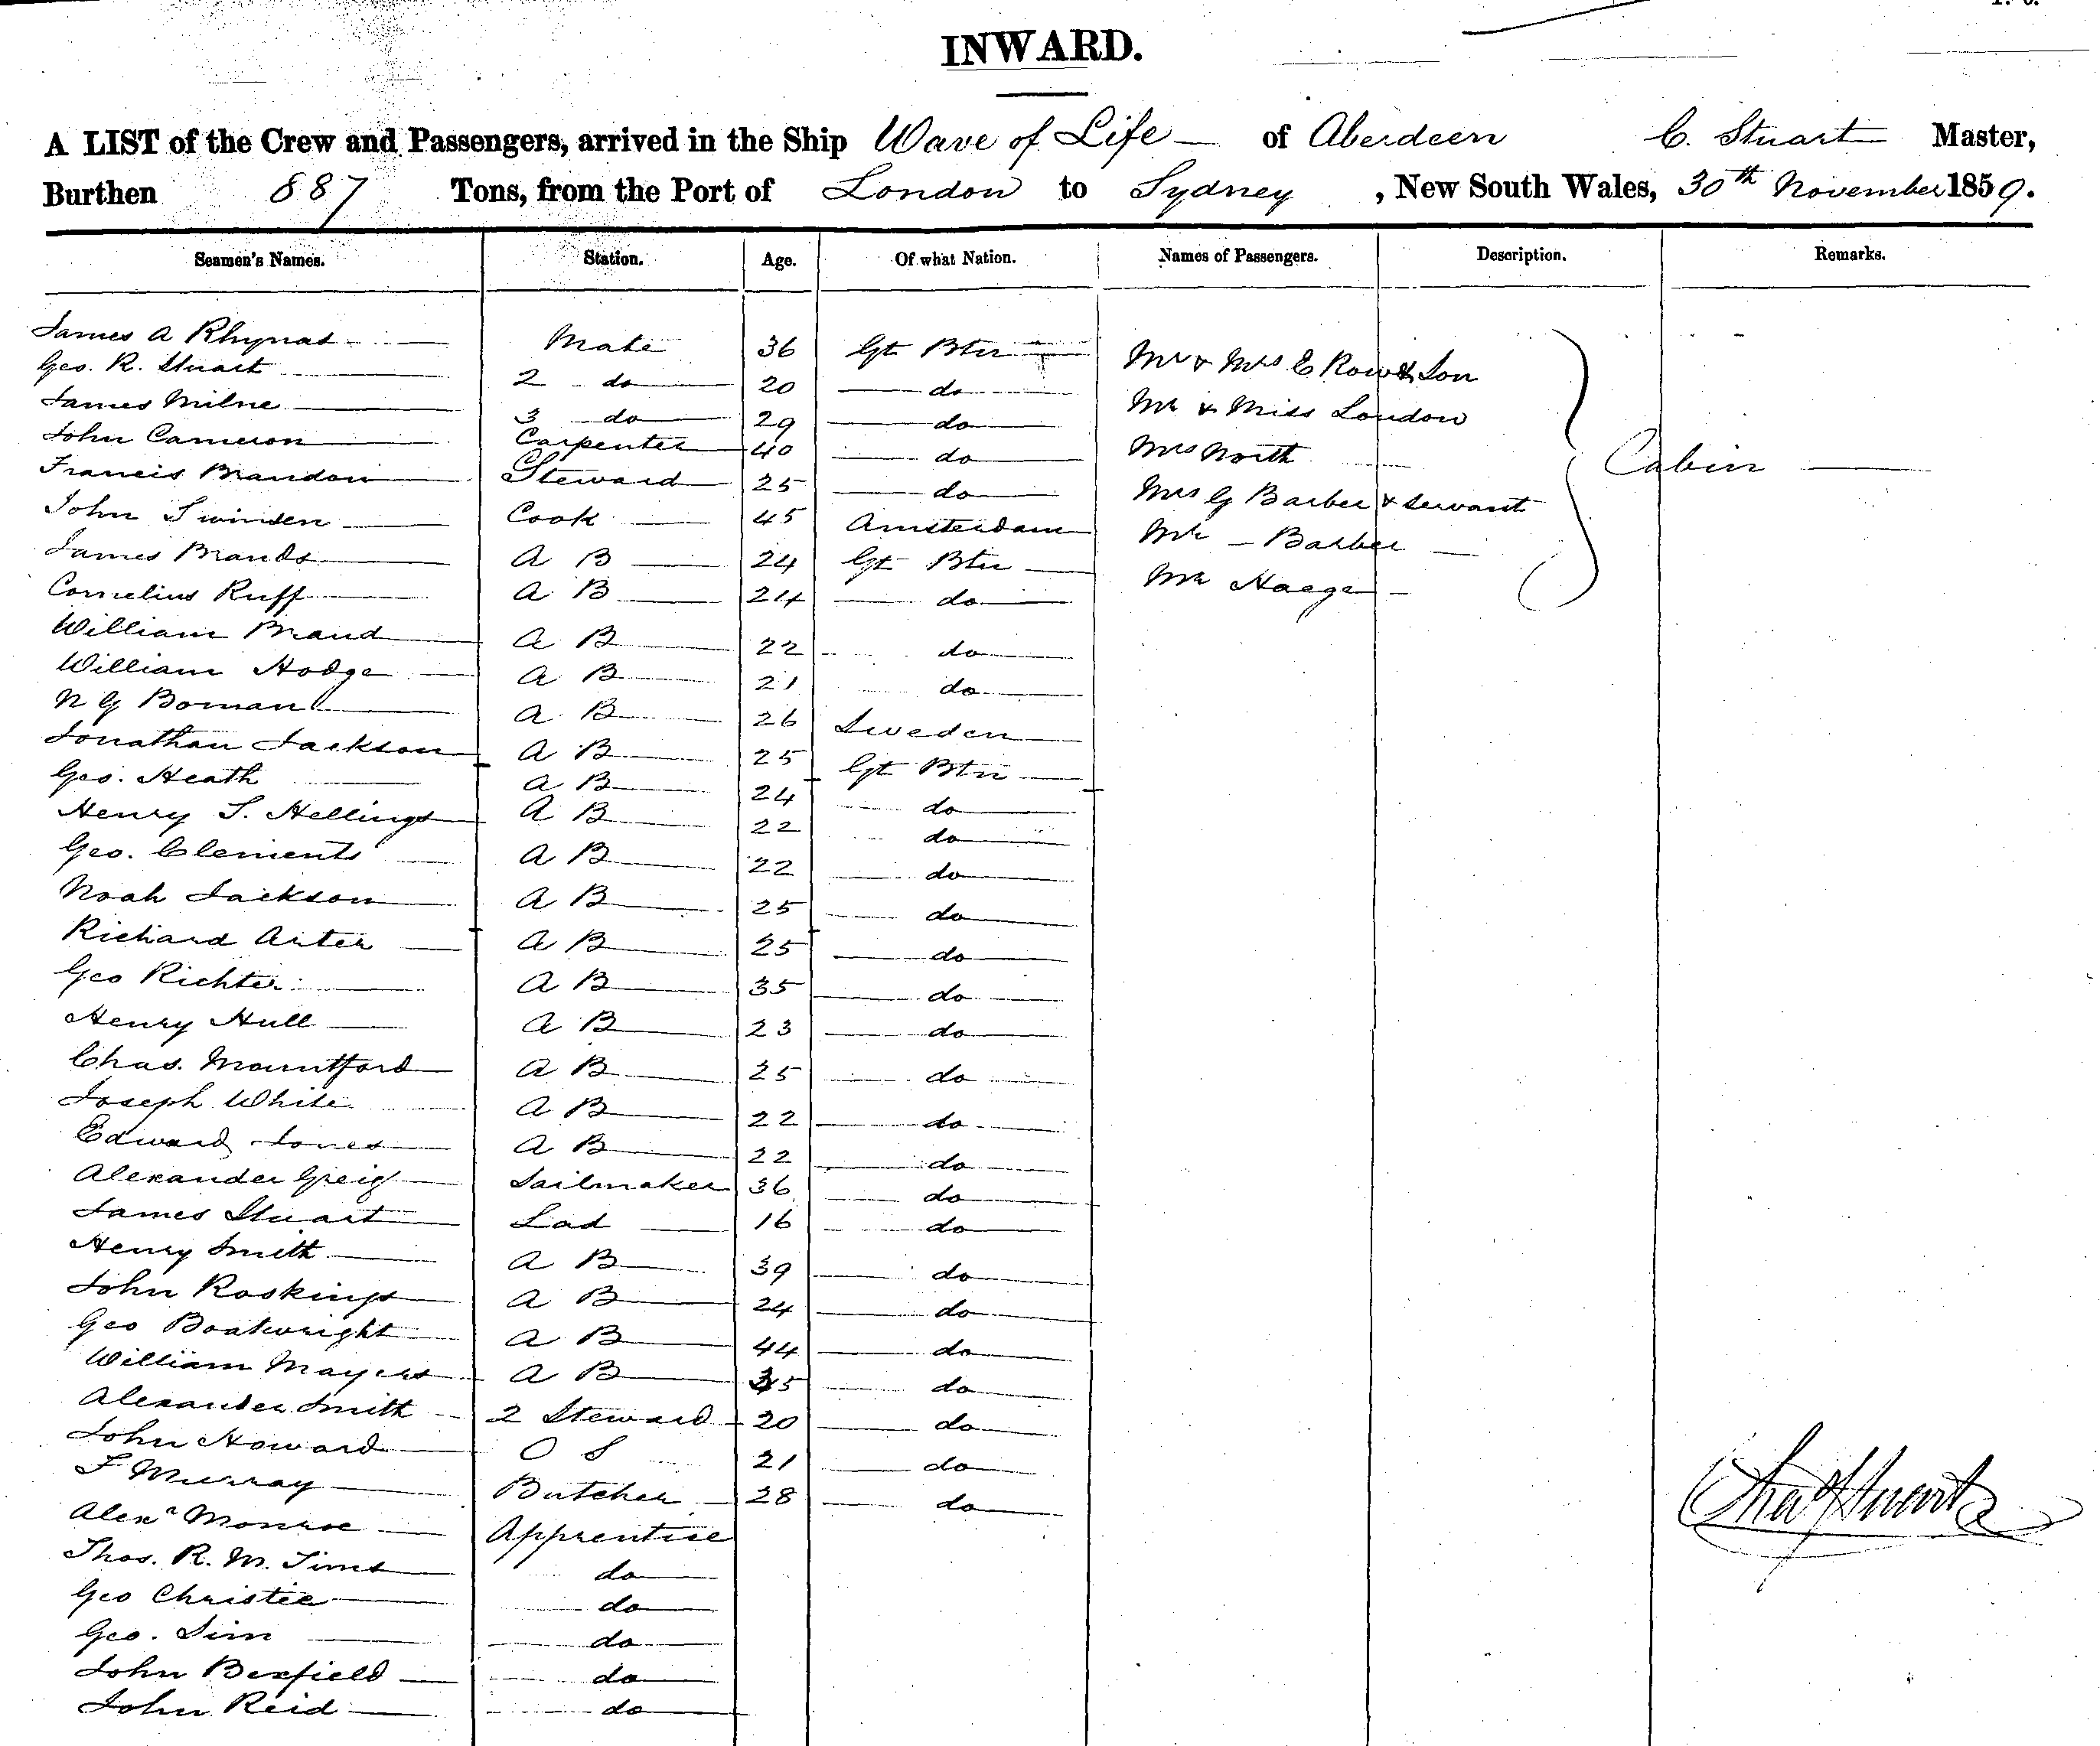 INWARD.
A LIST of the Crew and Passengers, arrived in the Ship Wave of Life of Aberdeen C. Stuart Master,
Burthen 887 Tons, from the Port of London to Sydney, New South Wales, 30th November 1859.
Seamen's Names. Station. Age. Of what Nation. Names of Passengers. Description. Remarks.
James A Rhynas Mate 36 Gt Btn Mr & Mrs E Row & Son
Geo. R. Stuart 2 do 20 do Mr & Miss London
James Milne 3 do 29 do Mrs North
John Cameron Carpenter 40 do Mrs G Barber & servant Cabin
Francis Brandon Steward 25 do Mr - Barber
John Swinden Cook 45 Amsterdam Mr Haege
James Brands A B 24 Gt Btn
Cornelius Ruff A B 24 do
William Brand A B 22 do
William Hodge A B 21 do
N G Boman A B 26 Sweden
Jonathan Jackson A B 25 Gt Btn
Geo. Heath A B 24 do
Henry S. Hellings A B 22 do
Geo. Clements A B 22 do
Noah Jackson A B 25 do
Richard Arter A B 25 do
Geo Richter A B 35 do
Henry Hull A B 23 do
Chas. Mountford A B 25 do
Joseph White A B 22 do
Edward Jones A B 22 do
Alexander Greig Sailmaker 36 do
James Stuart Lad 16 do
Henry Smith A B 39 do
John Roskings A B 24 do
Geo Boatwright A B 44 do
William Mayers A B do
Alexander Smith 2 Steward 20 do
John Howard O S 21 do
F Murray Butcher 28 do
Alexr Monroe Apprentice
Thos. R. M. Sims do
Geo Christie do
Geo. Sim do
John Bexfield do
John Reid do